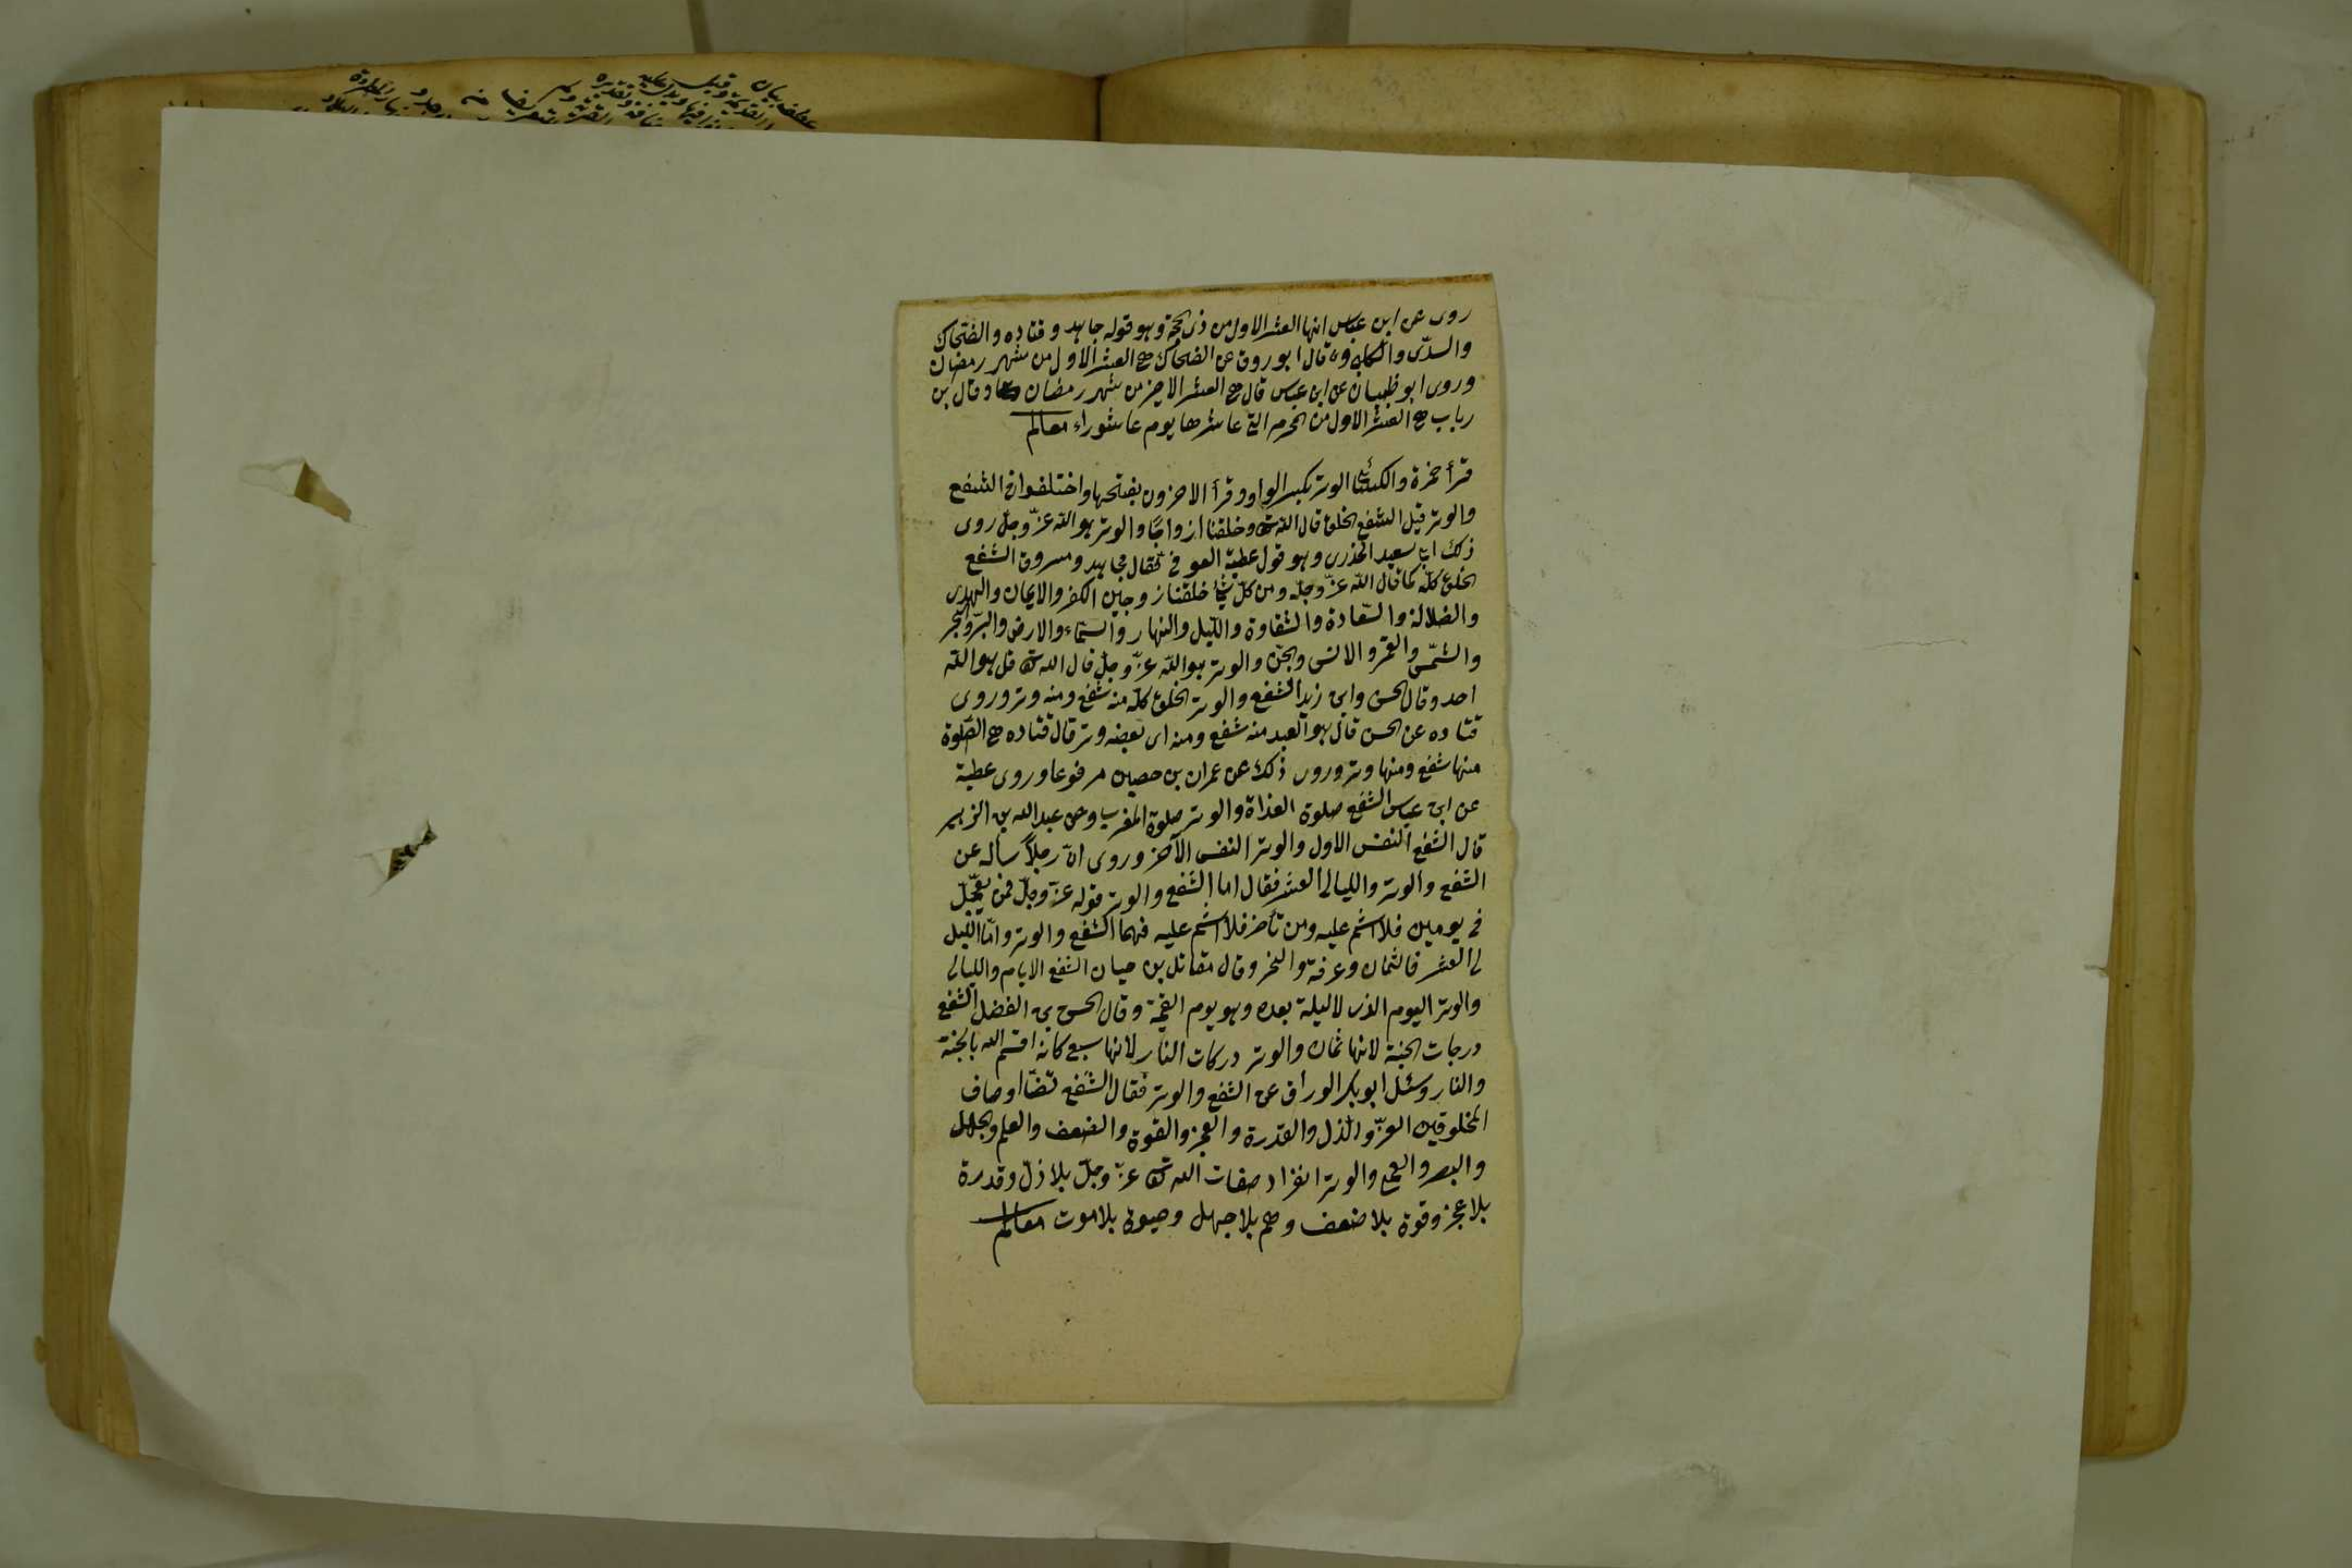 روى عن ابن عباس انها العشر الاول من ذى الحجة وهو قوله جاهد و قتاده والضحاك
والسدّى والكلبى وقال ابو روق عن الضحاك هى العشر الاول من شهر رمضان
وروى ابو ظبيان عن ابن عباس قال هى العشر الاخر من شهر رمضان وقال بن
رباب هى العشر الاول من المحرم التى عاشرها يوم عاشوراء معالم
قرأ حمزة والكسائى الوتر بكسر الواو وقرأ الاخرون بفتحها واختلفوا فى الشفع
والوتر قيل الشفع الخلق قال الله تعالى وخلقناازواجًا والوتر هو الله عزّ وجلّ روى
ذلك ابى سعيد الخذرى وهو قول عطية العوفى فقال مجاهد ومسروق الشفع
الخلق كلّه كما قال الله عزّ وجلّ ومن كلّ شئ خلقنا زوجين الكفر والايمان والهدى
والضلالة والسّعادة والشقاوة والليل والنهار والسّماء والارض والبرّ والبحر
والشمّس والقمر والانس والجنّ والوتر هو الله عزّ وجلّ قال الله تعالى قل هو الله
احد وقال الحسن وابن زيد الشفع والوتر الخلق كلّه منه شفع ومنه وتر وروى
قتاده عن الحسن قال هو العبد منه شفع ومنه اى بعضه وتر قال قتاده هى الصّلوة
منها شفع ومنها وتر وروى ذلك عن عمران بن حصين مرفوعا وروى عطية
عن ابن عباس الشفع صلوة الغداة والوتر صلوة المغرب وعن عبدالله بن الزبير
قال الشفع النفس الاول والوتر النفس الآخر وروى انّ رجلاً سأله عن
الشفع والوتر والليالى العشر فقال اما الشفع والوتر قوله عزّ وجلّ فمن تعجّل
فى يومين فلا اثم عليه ومن تأخر فلا اثم عليه فهما الشفع والوتر وامّا الليل
لى العشر فالثمان وعرفة والنحر وقال مقاتل بن حيان الشفع الايام والليالى
والوتر اليوم الذى لا ليلة بعده وهو يوم القيمة وقال الحسن بن الفضل الشفع
درجات الجنة لانها ثمان والوتر دركات النار لانها سبع كانه اقسم الله بالجنة
والنار وسئل ابو بكر الوراق عن الشفع والوتر فقال الشفع تضّا اوصاف
المخلوقين العزّ والذل والقدرة والعجز والقوة والضعف والعلم والجهل
والبصر والعمى والوتر انفراد صفات الله تعالى عزّ وجلّ بلا ذلّ وقدرة
بلا عجز وقوة بلا ضعف وعلم بلا جهل وحيوة بلا موت معالم